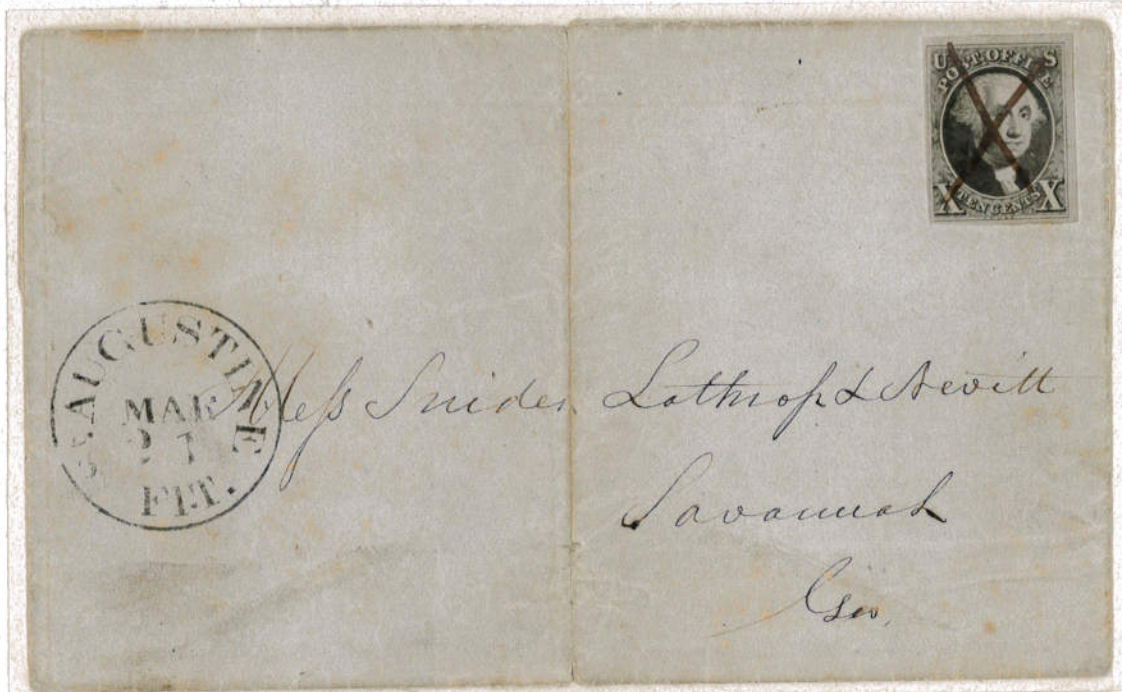 U S
POST OFFICE
X TEN CENTS X
ST. AUGUSTINE
MAR
21
FLT.
Mess Snider Lathrop & Nevitt
Savannah
Geo.